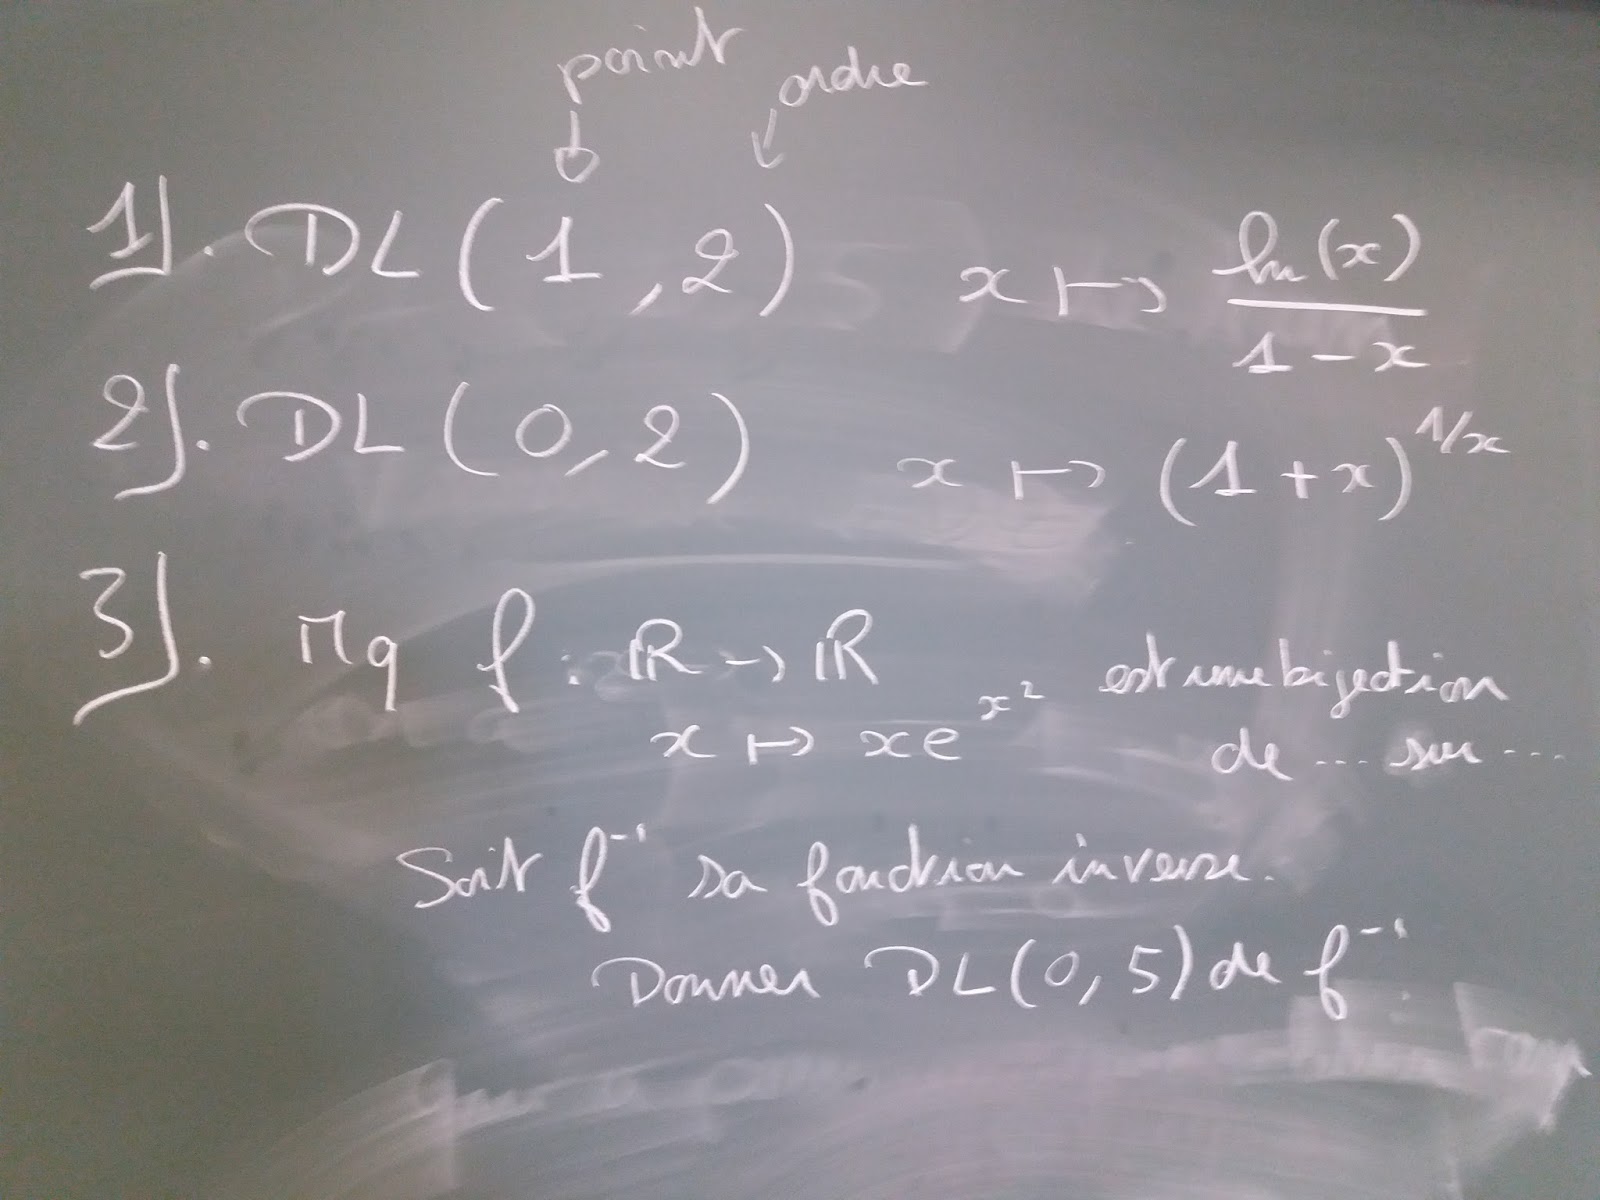 point ordre
1). DL(1,2) x ↦ ln(x)/(1-x)
2). DL(0,2) x ↦ (1+x)^{1/x}
3). Mq f: ℝ → ℝ
x ↦ xe^{x²} est une bijection
de ... sur ...
Soit f⁻¹ sa fonction inverse.
Donner DL(0,5) de f⁻¹.